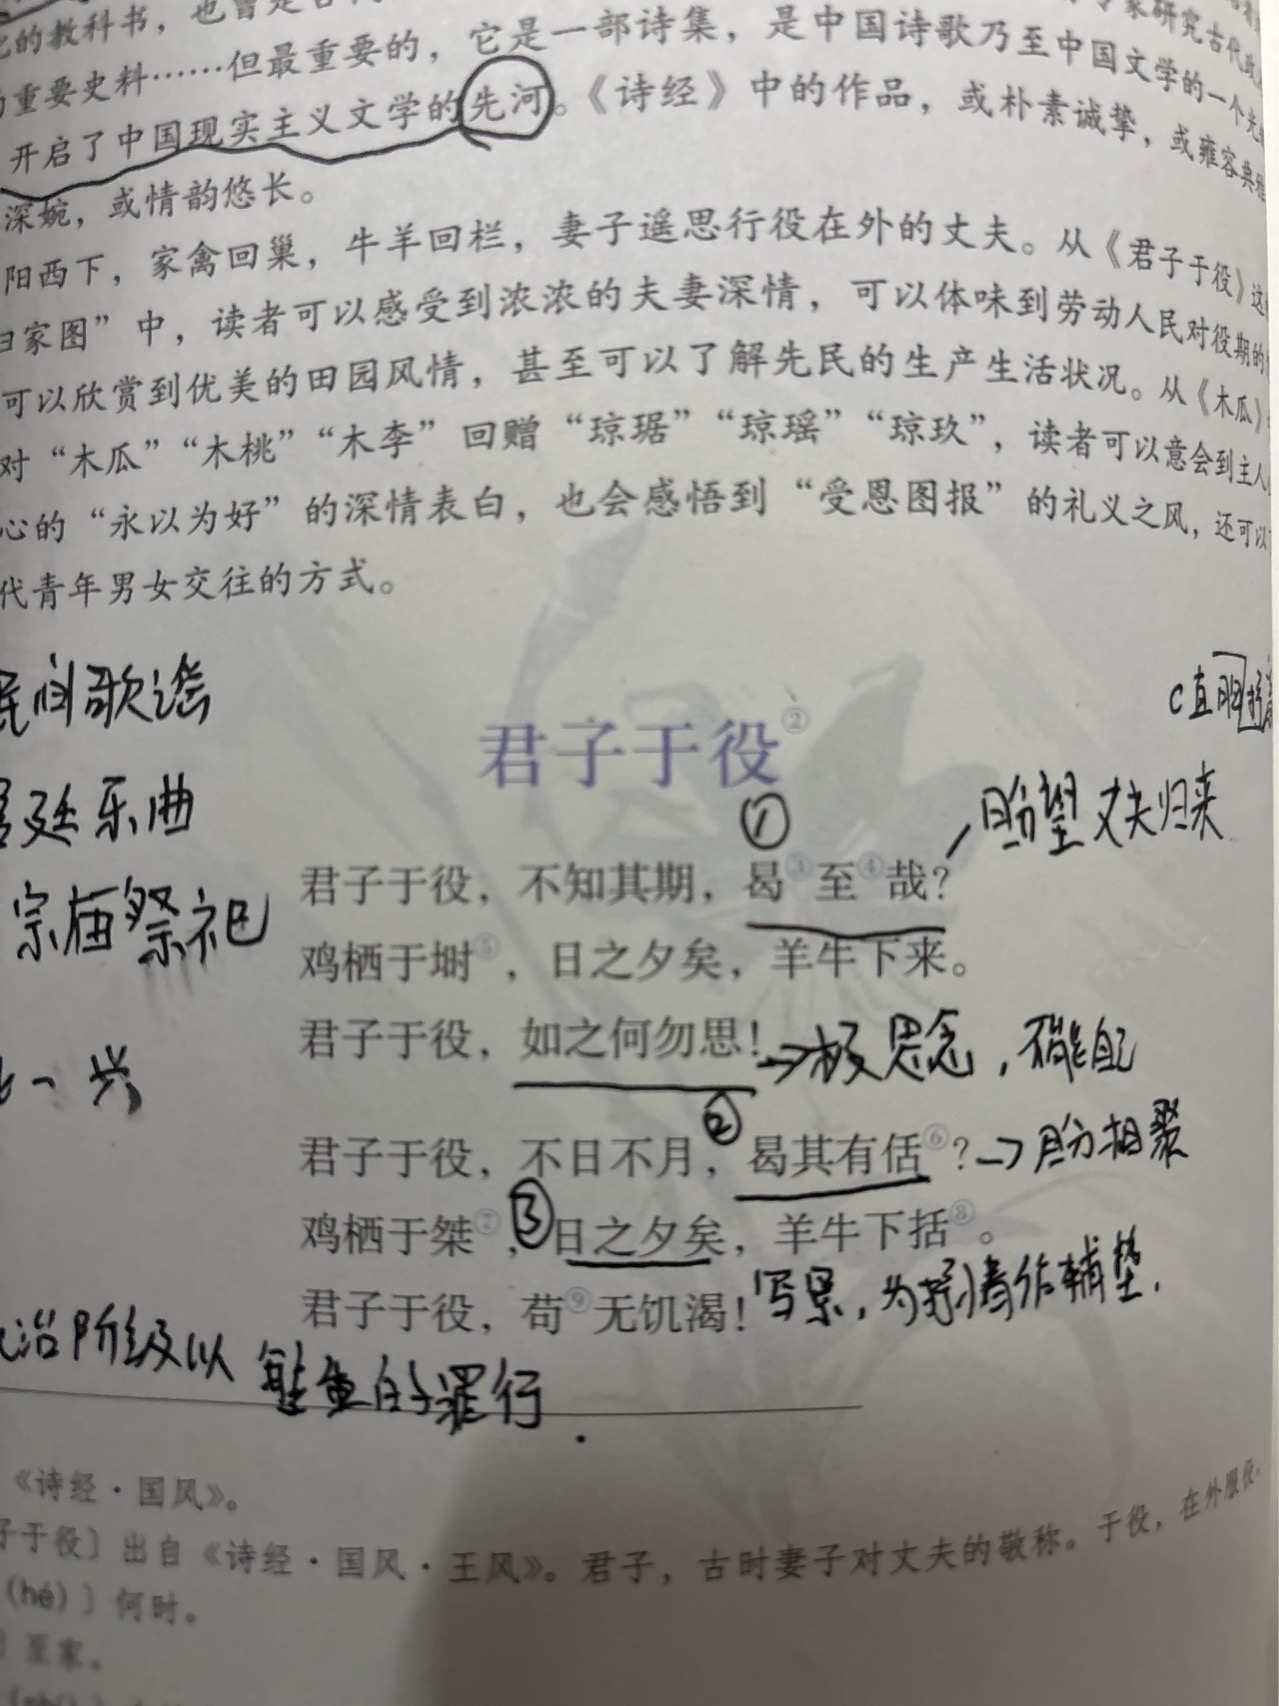 的教科书，也曾是
重要史料……但最重要的，它是一部诗集，是中国诗歌乃至中国文学的一个光
开启了中国现实主义文学的先河。《诗经》中的作品，或朴素诚挚，或雍容典雅
深婉，或情韵悠长。
阳西下，家禽回巢，牛羊回栏，妻子遥思行役在外的丈夫。从《君子于役》这
归家图”中，读者可以感受到浓浓的夫妻深情，可以体味到劳动人民对役期的
可以欣赏到优美的田园风情，甚至可以了解先民的生产生活状况。从《木瓜》
对“木瓜”“木桃”“木李”回赠“琼琚”“琼瑶”“琼玖”，读者可以意会到主人
心的“永以为好”的深情表白，也会感悟到“受恩图报”的礼义之风，还可以
代青年男女交往的方式。
民间歌谣
君子于役②
宫廷乐曲
①
盼望丈夫归来
君子于役，不知其期，曷③至④哉？
宗庙祭祀
鸡栖于埘⑤，日之夕矣，羊牛下来。
君子于役，如之何勿思！
→极思念，不能自已
兴
②
君子于役，不日不月，曷其有佸⑥？
→盼相聚
③
鸡栖于桀⑦，日之夕矣，羊牛下括⑧。
君子于役，苟⑨无饥渴！
写景，为抒情作辅垫.
治阶级以
的罪行.
《诗经·国风》。
子于役〕出自《诗经·国风·王风》。君子，古时妻子对丈夫的敬称。于役，在外服役。
（hé）〕何时。
〕至家。